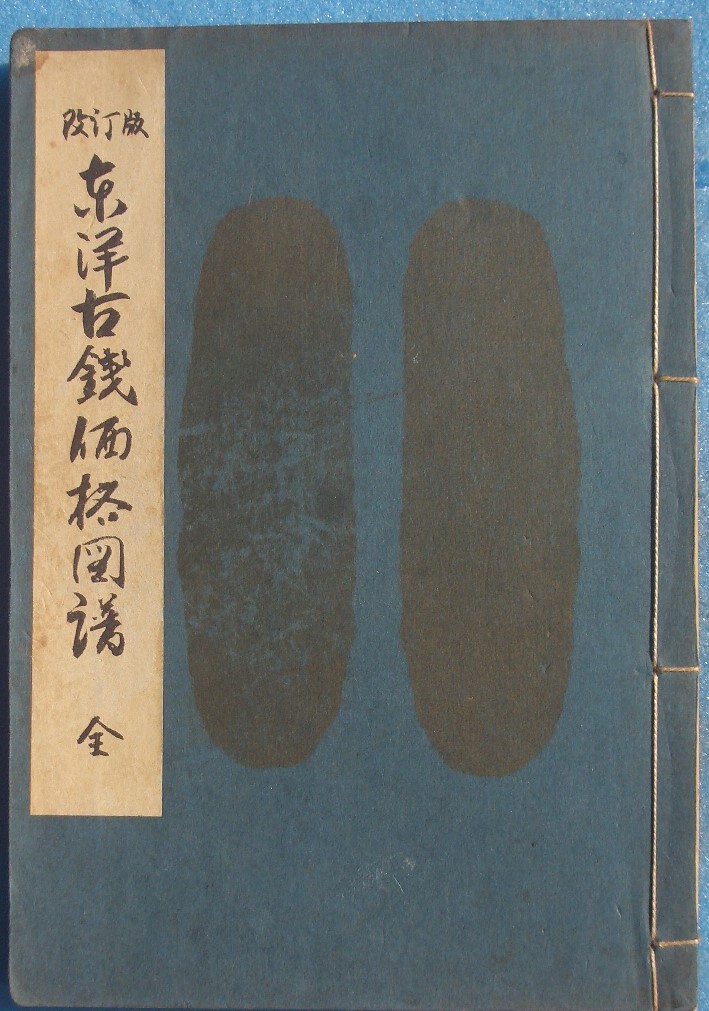 改订版
东洋古銭価格図譜 全